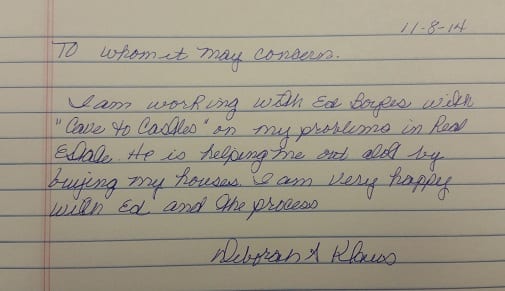 11-8-14
To whom it may concern.
I am working with Ed Boyles with
"Cave to Castles" on my problems in Real
Estate. He is helping me out alot by
buying my houses. I am very happy
with Ed and the process
Deborah S Klauss